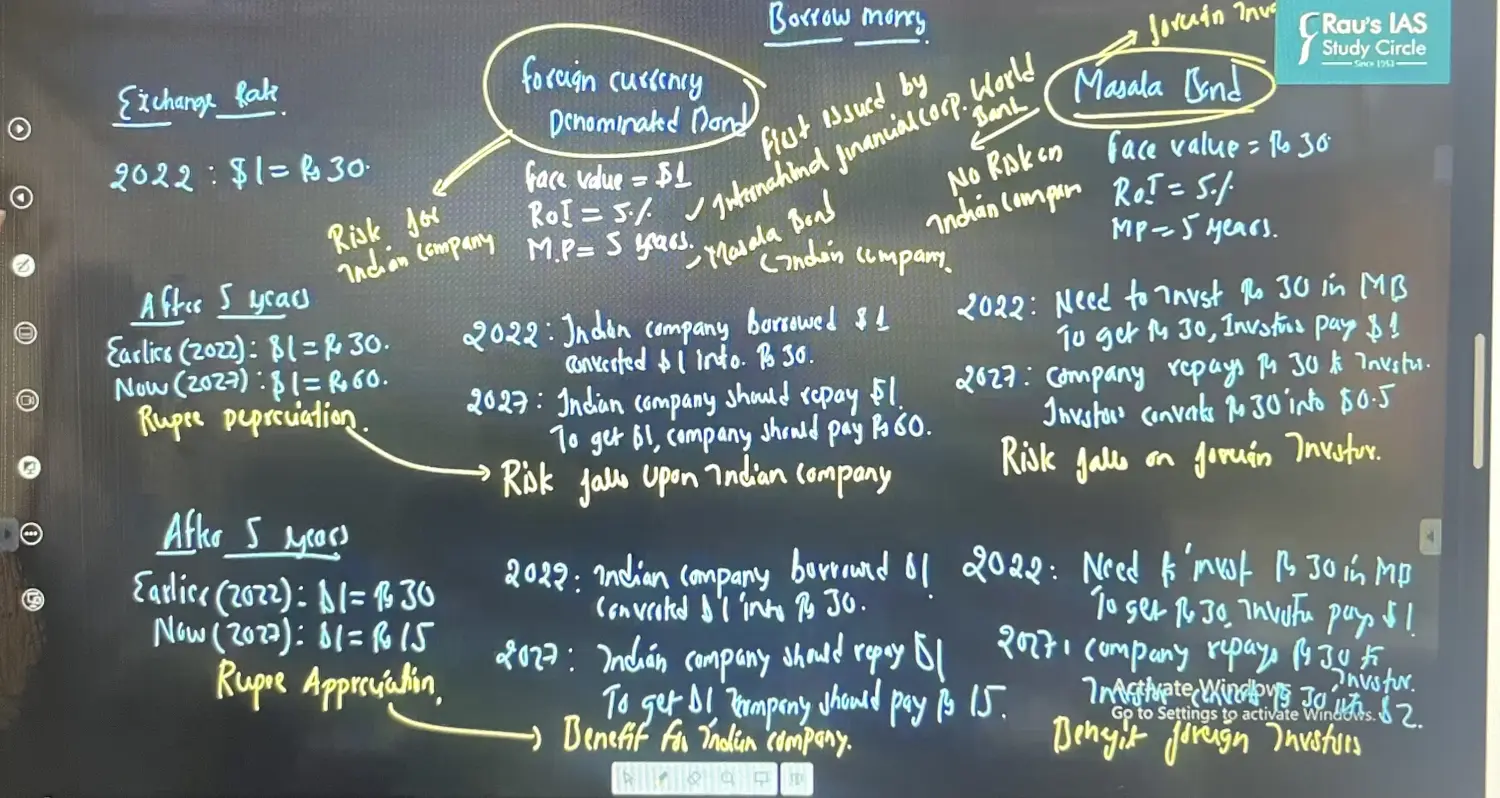 Borrow money
Rau's IAS
Study Circle
Since 1953
Exchange Rate
2022 : $1 = Rs 30.
foreign currency
Denominated Bond
Face value = $1
RoI = 5%
M.P = 5 years.
Risk for
Indian Company
First issued by
International financial Corp. World
Bank
Masala Bond
(Indian company.
foreign Inve
Masala Bond
No Risk on
Indian Compan
Face value = Rs 30
RoI = 5%
MP = 5 years.
After 5 years
Earlier (2022) : $1 = Rs 30.
Now (2027) : $1 = Rs 60.
Rupee Depreciation.
2022 : Indian company borrowed $1
converted $1 into Rs 30.
2027 : Indian company should repay $1
To get $1, company should pay Rs 60.
Risk falls upon Indian company
2022 : Need to invst Rs 30 in MB
To get Rs 30, Investors pay $1
2027 : Company repays Rs 30 to Investor.
Investors converts Rs 30 into $0.5
Risk falls on foreign Investor.
After 5 years
Earlier (2022) : $1 = Rs 30
Now (2027) : $1 = Rs 15
Rupee Appreciation.
2022 : Indian company borrowed $1
Converted $1 into Rs 30.
2027 : Indian company should repay $1
To get $1, company should pay Rs 15.
Benefit for Indian company.
2022 : Need to invest Rs 30 in MB
To get Rs 30, Investor pays $1
2027 : company repays Rs 30 to
Investor.
Investor converts Rs 30 into $2.
Benefit foreign Investors
Activate Windows
Go to Settings to activate Windows.